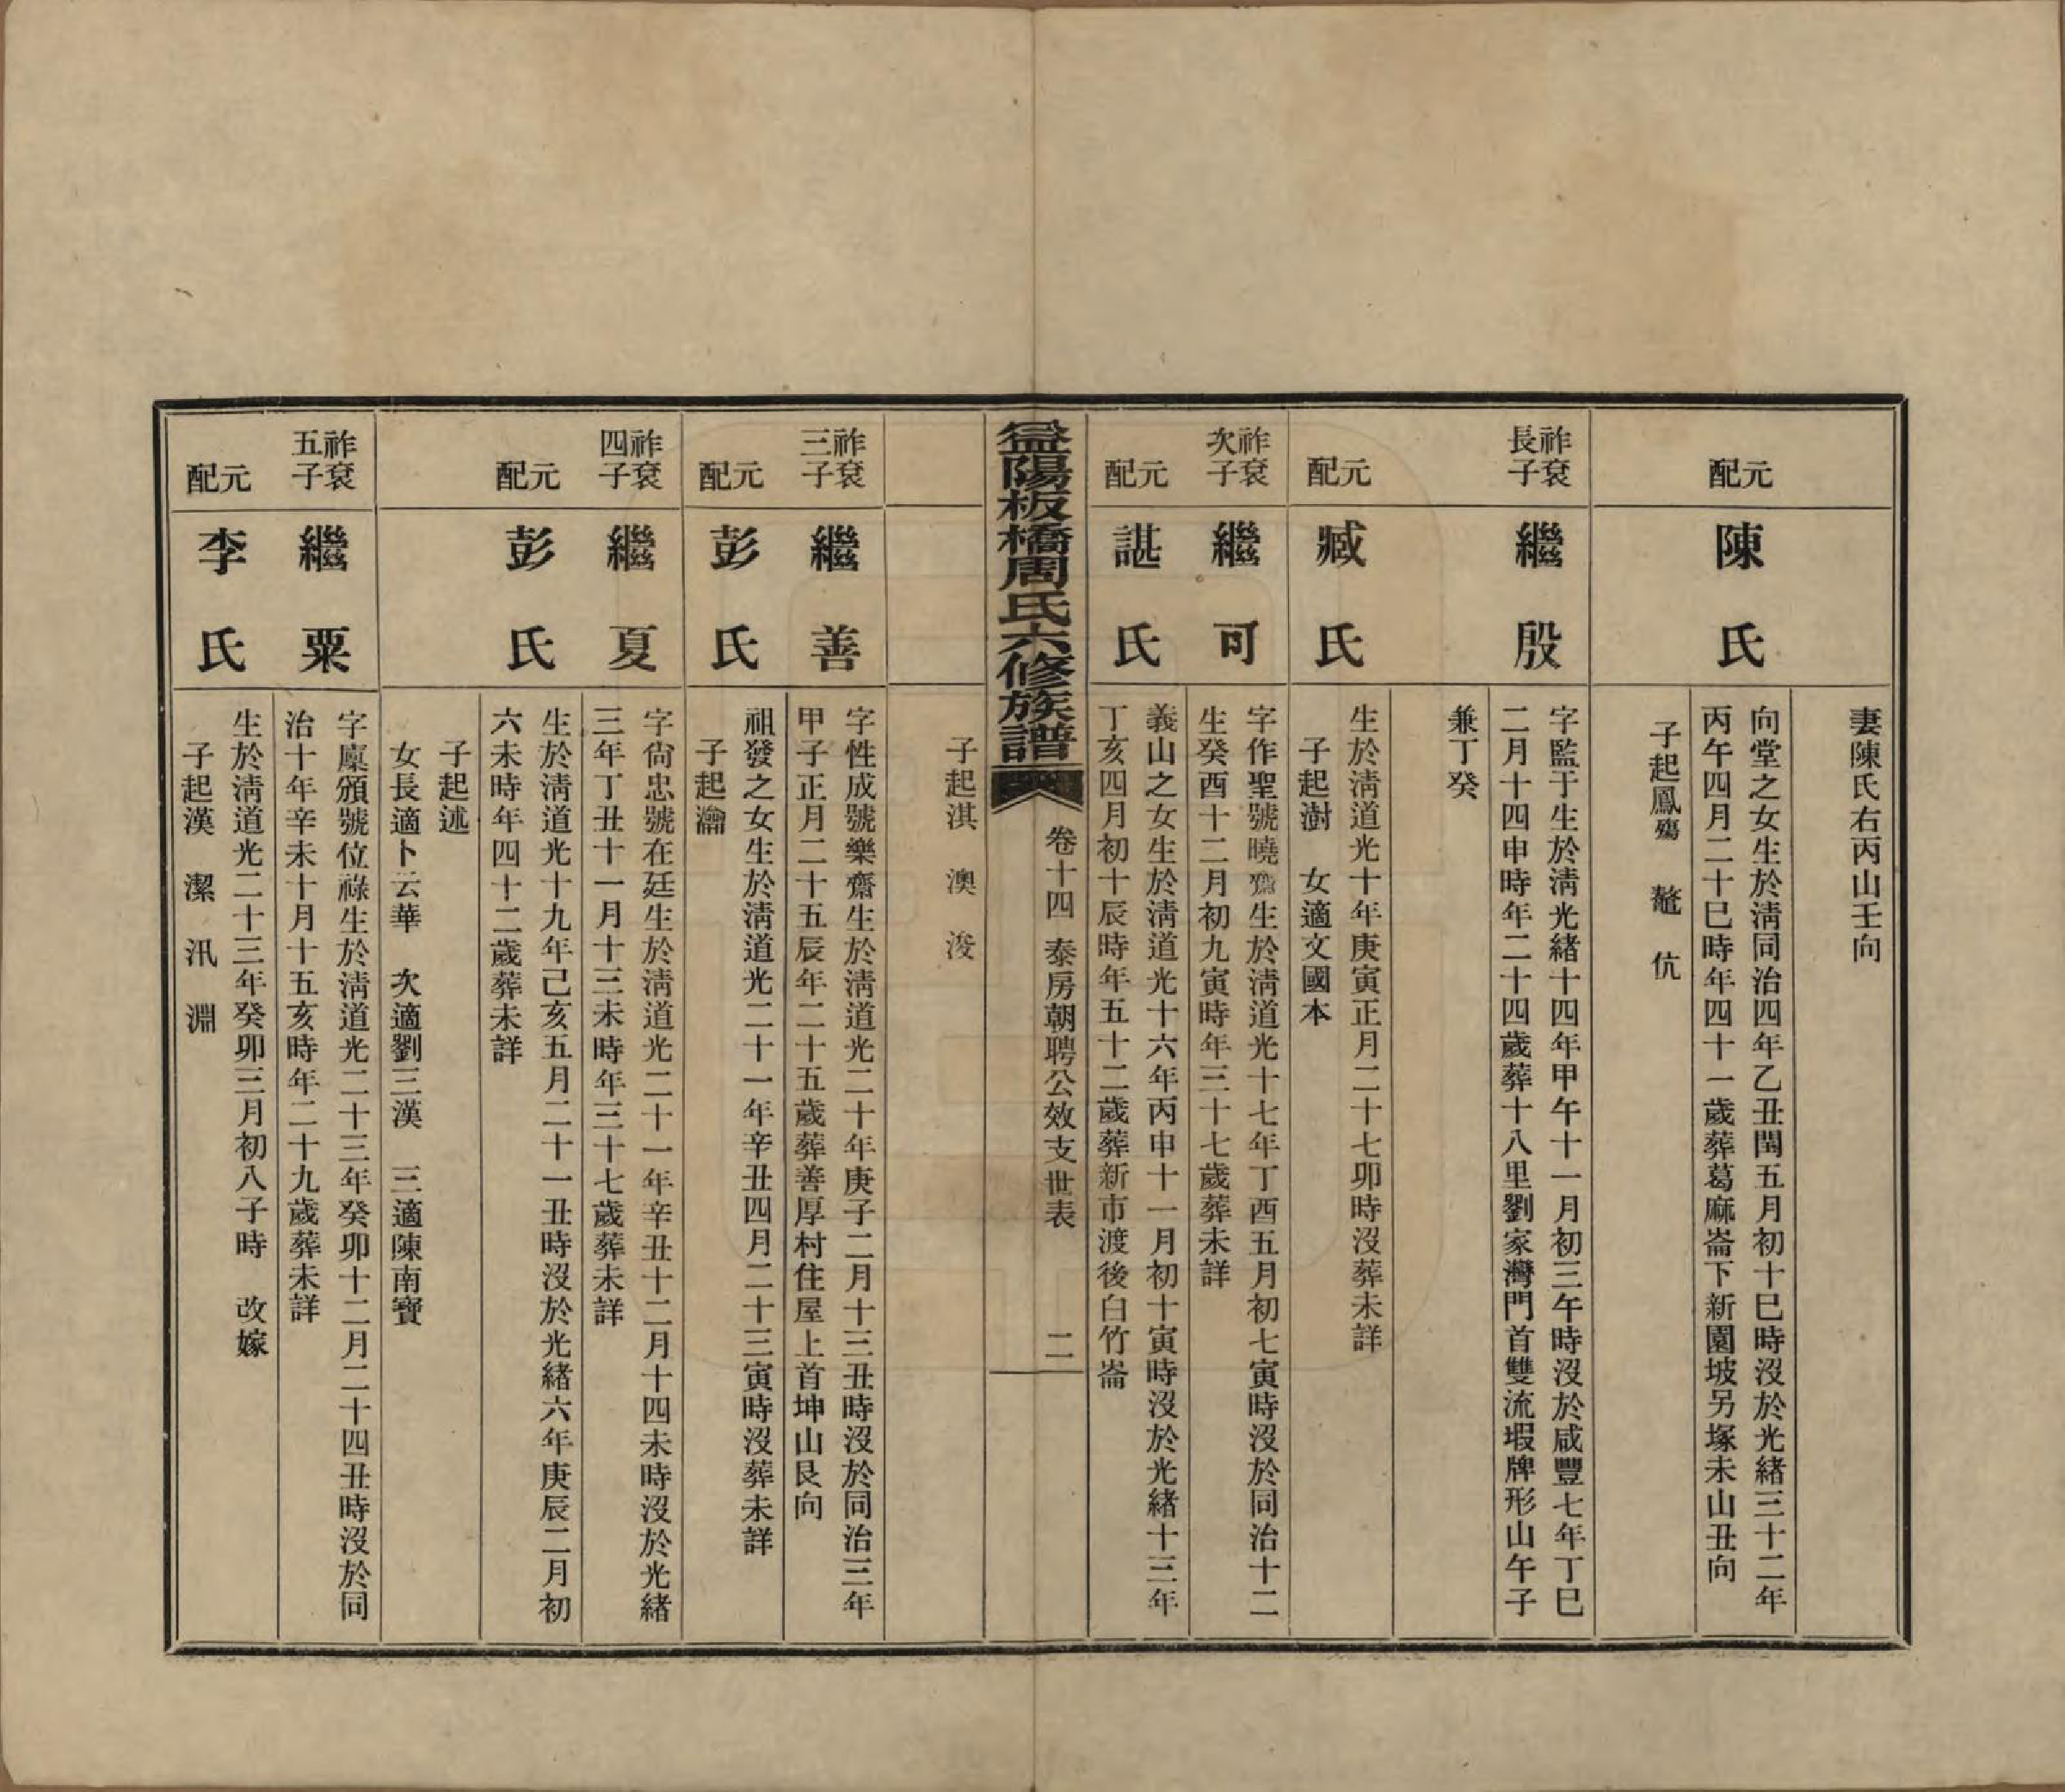 妻陳氏右丙山壬向
元配
陳氏
向堂之女生於淸同治四年乙丑閏五月初十巳時沒於光緒三十二年
丙午四月二十巳時年四十一歲葬葛麻崙下新園坡另塚未山丑向
子起鳳殤 鼇 伉
祚袞長子
繼殷
字監于生於淸光緒十四年甲午十一月初三午時沒於咸豐七年丁巳
二月十四申時年二十四歲葬十八里劉家灣門首雙流塅牌形山午子
兼丁癸
元配
臧氏
生於淸道光十年庚寅正月二十七卯時沒葬未詳
子起澍 女適文國本
祚袞次子
繼可
字作聖號曉齋生於淸道光十七年丁酉五月初七寅時沒於同治十二
生癸酉十二月初九寅時年三十七歲葬未詳
元配
諶氏
義山之女生於淸道光十六年丙申十一月初十寅時沒於光緒十三年
丁亥四月初十辰時年五十二歲葬新市渡後白竹崙
益陽板橋周氏六修族譜
卷十四 泰房朝聘公效支世表
二
子起淇 澳 浚
祚袞三子
繼善
字性成號樂齋生於淸道光二十年庚子二月十三丑時沒於同治三年
甲子正月二十五辰年二十五歲葬善厚村住屋上首坤山艮向
元配
彭氏
祖發之女生於淸道光二十一年辛丑四月二十三寅時沒葬未詳
子起瀹
祚袞四子
繼夏
字尙忠號在廷生於淸道光二十一年辛丑十二月十四未時沒於光緒
三年丁丑十一月十三未時年三十七歲葬未詳
元配
彭氏
生於淸道光十九年己亥五月二十一丑時沒於光緒六年庚辰二月初
六未時年四十二歲葬未詳
子起述
女長適卜云華 次適劉三漢 三適陳南寶
祚袞五子
繼粟
字廩頒號位祿生於淸道光二十三年癸卯十二月二十四丑時沒於同
治十年辛未十月十五亥時年二十九歲葬未詳
元配
李氏
生於淸道光二十三年癸卯三月初八子時 改嫁
子起漢 潔 汛 淵